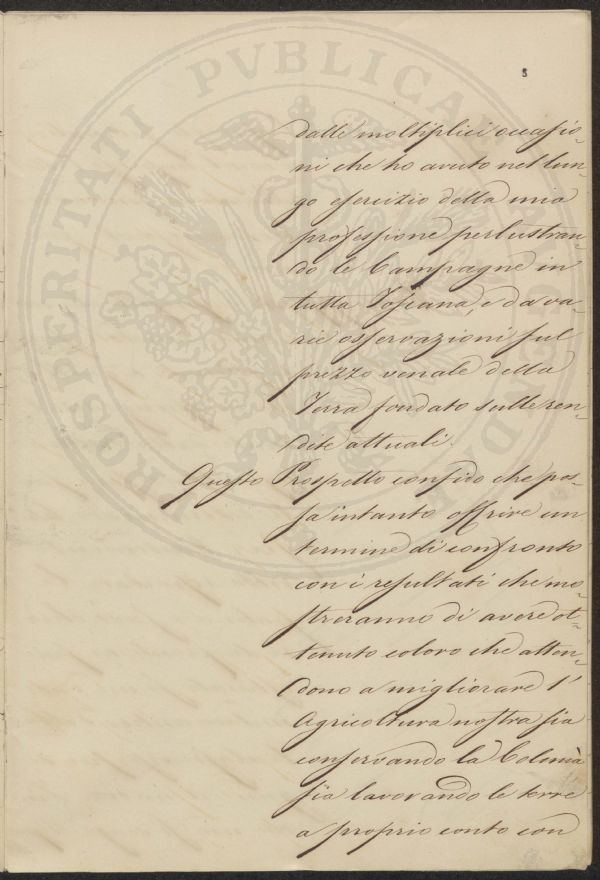 PROSPERITATI PVBLICAE AVGENDAE
5
dalle moltiplici occasio-
ni che ho avuto nel lun-
go esercizio della mia
professione perlustran-
do le Campagne in
tutta Toscana, e da va-
rie osservazioni sul
prezzo venale della
Terra fondato sulle ren-
dite attuali.
Questo Prospetto confido che pos-
sa intanto offrire un
termine di confronto
con i resultati che mo-
streranno di avere ot-
tenuto coloro che atten-
dono a migliorare l'
Agricoltura nostra sia
conservando la Colonia
sia lavorando le terre
a proprio conto con